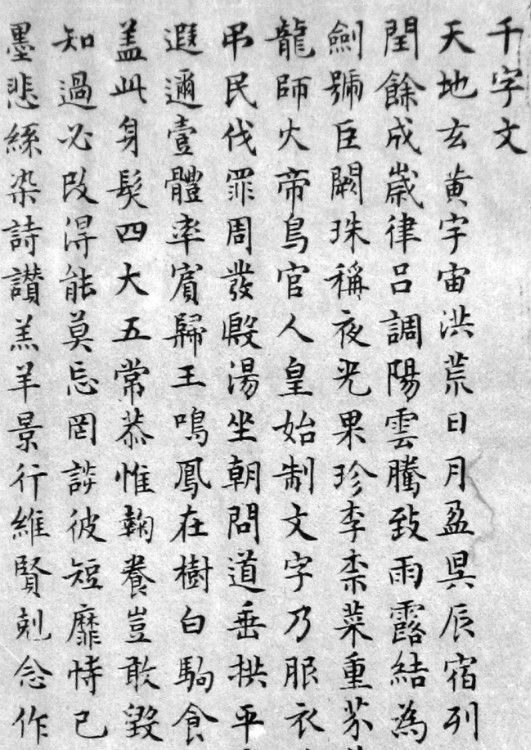 千字文
天地玄黄宇宙洪荒日月盈昃辰宿列
閏餘成歲律吕調陽雲騰致雨露結為
劍號巨闕珠稱夜光果珍李柰菜重芥
龍師火帝鳥官人皇始制文字乃服衣
弔民伐罪周發殷湯坐朝問道垂拱平
遐邇壹體率賓歸王鳴鳳在樹白駒食
盖此身髮四大五常恭惟鞠養豈敢毀
知過必改得能莫忘罔談彼短靡恃己
墨悲絲染詩讚羔羊景行維賢剋念作